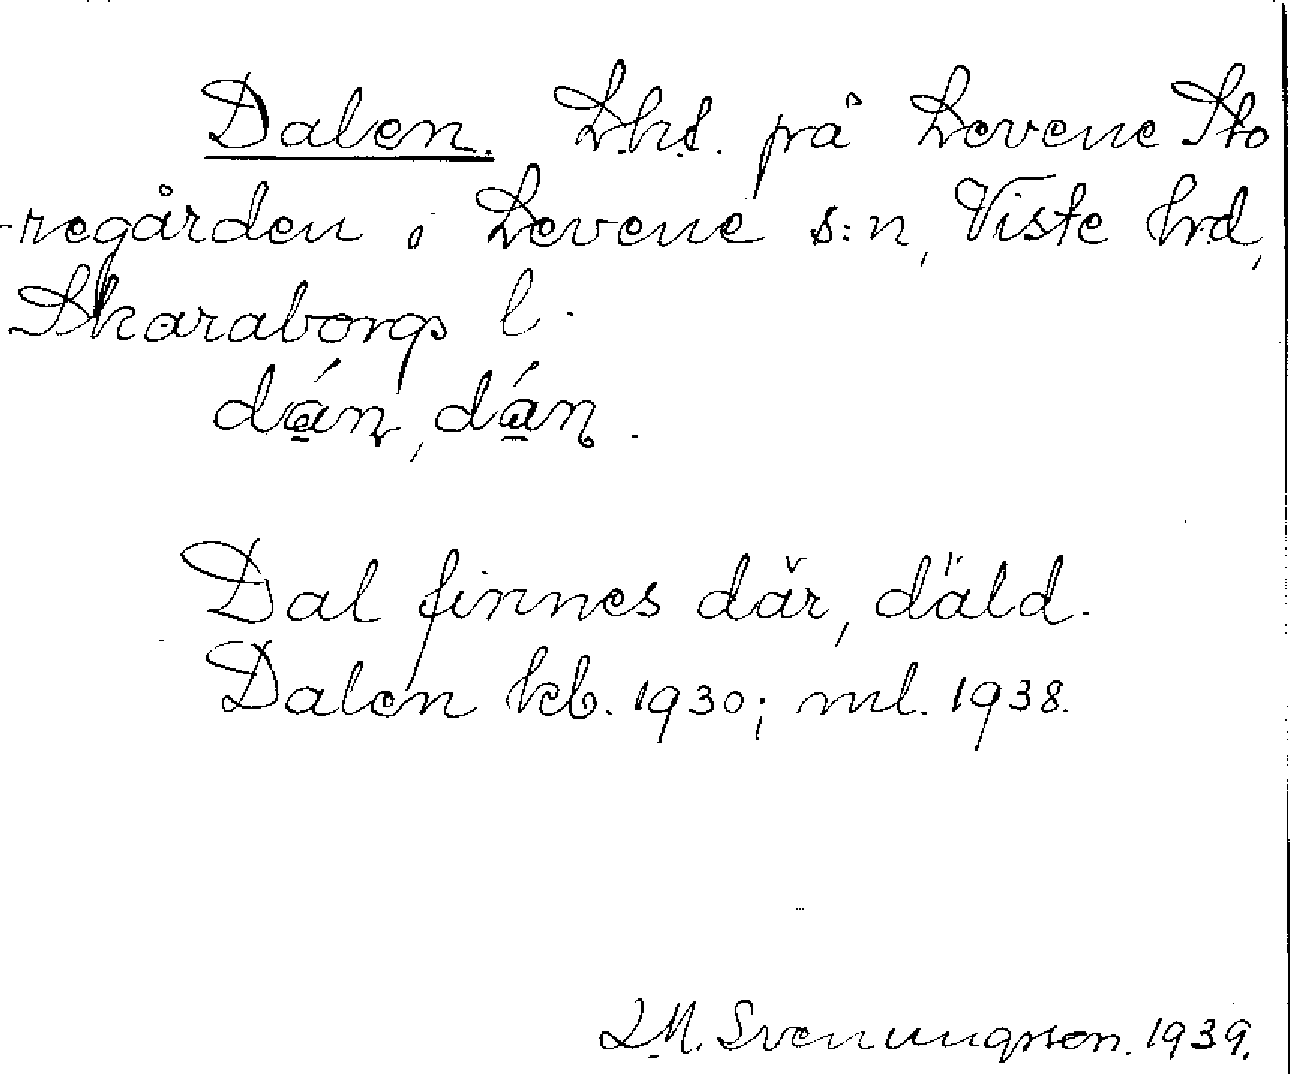 Dalen. Lhs. på Levene Sto
-regården i Levene s:n, Viste hrd,
Skaraborgs l.
dán, dán.
Dal finnes där, däld.
Dalen kb. 1930; ml. 1938.
L.M. Svenungsson. 1939.